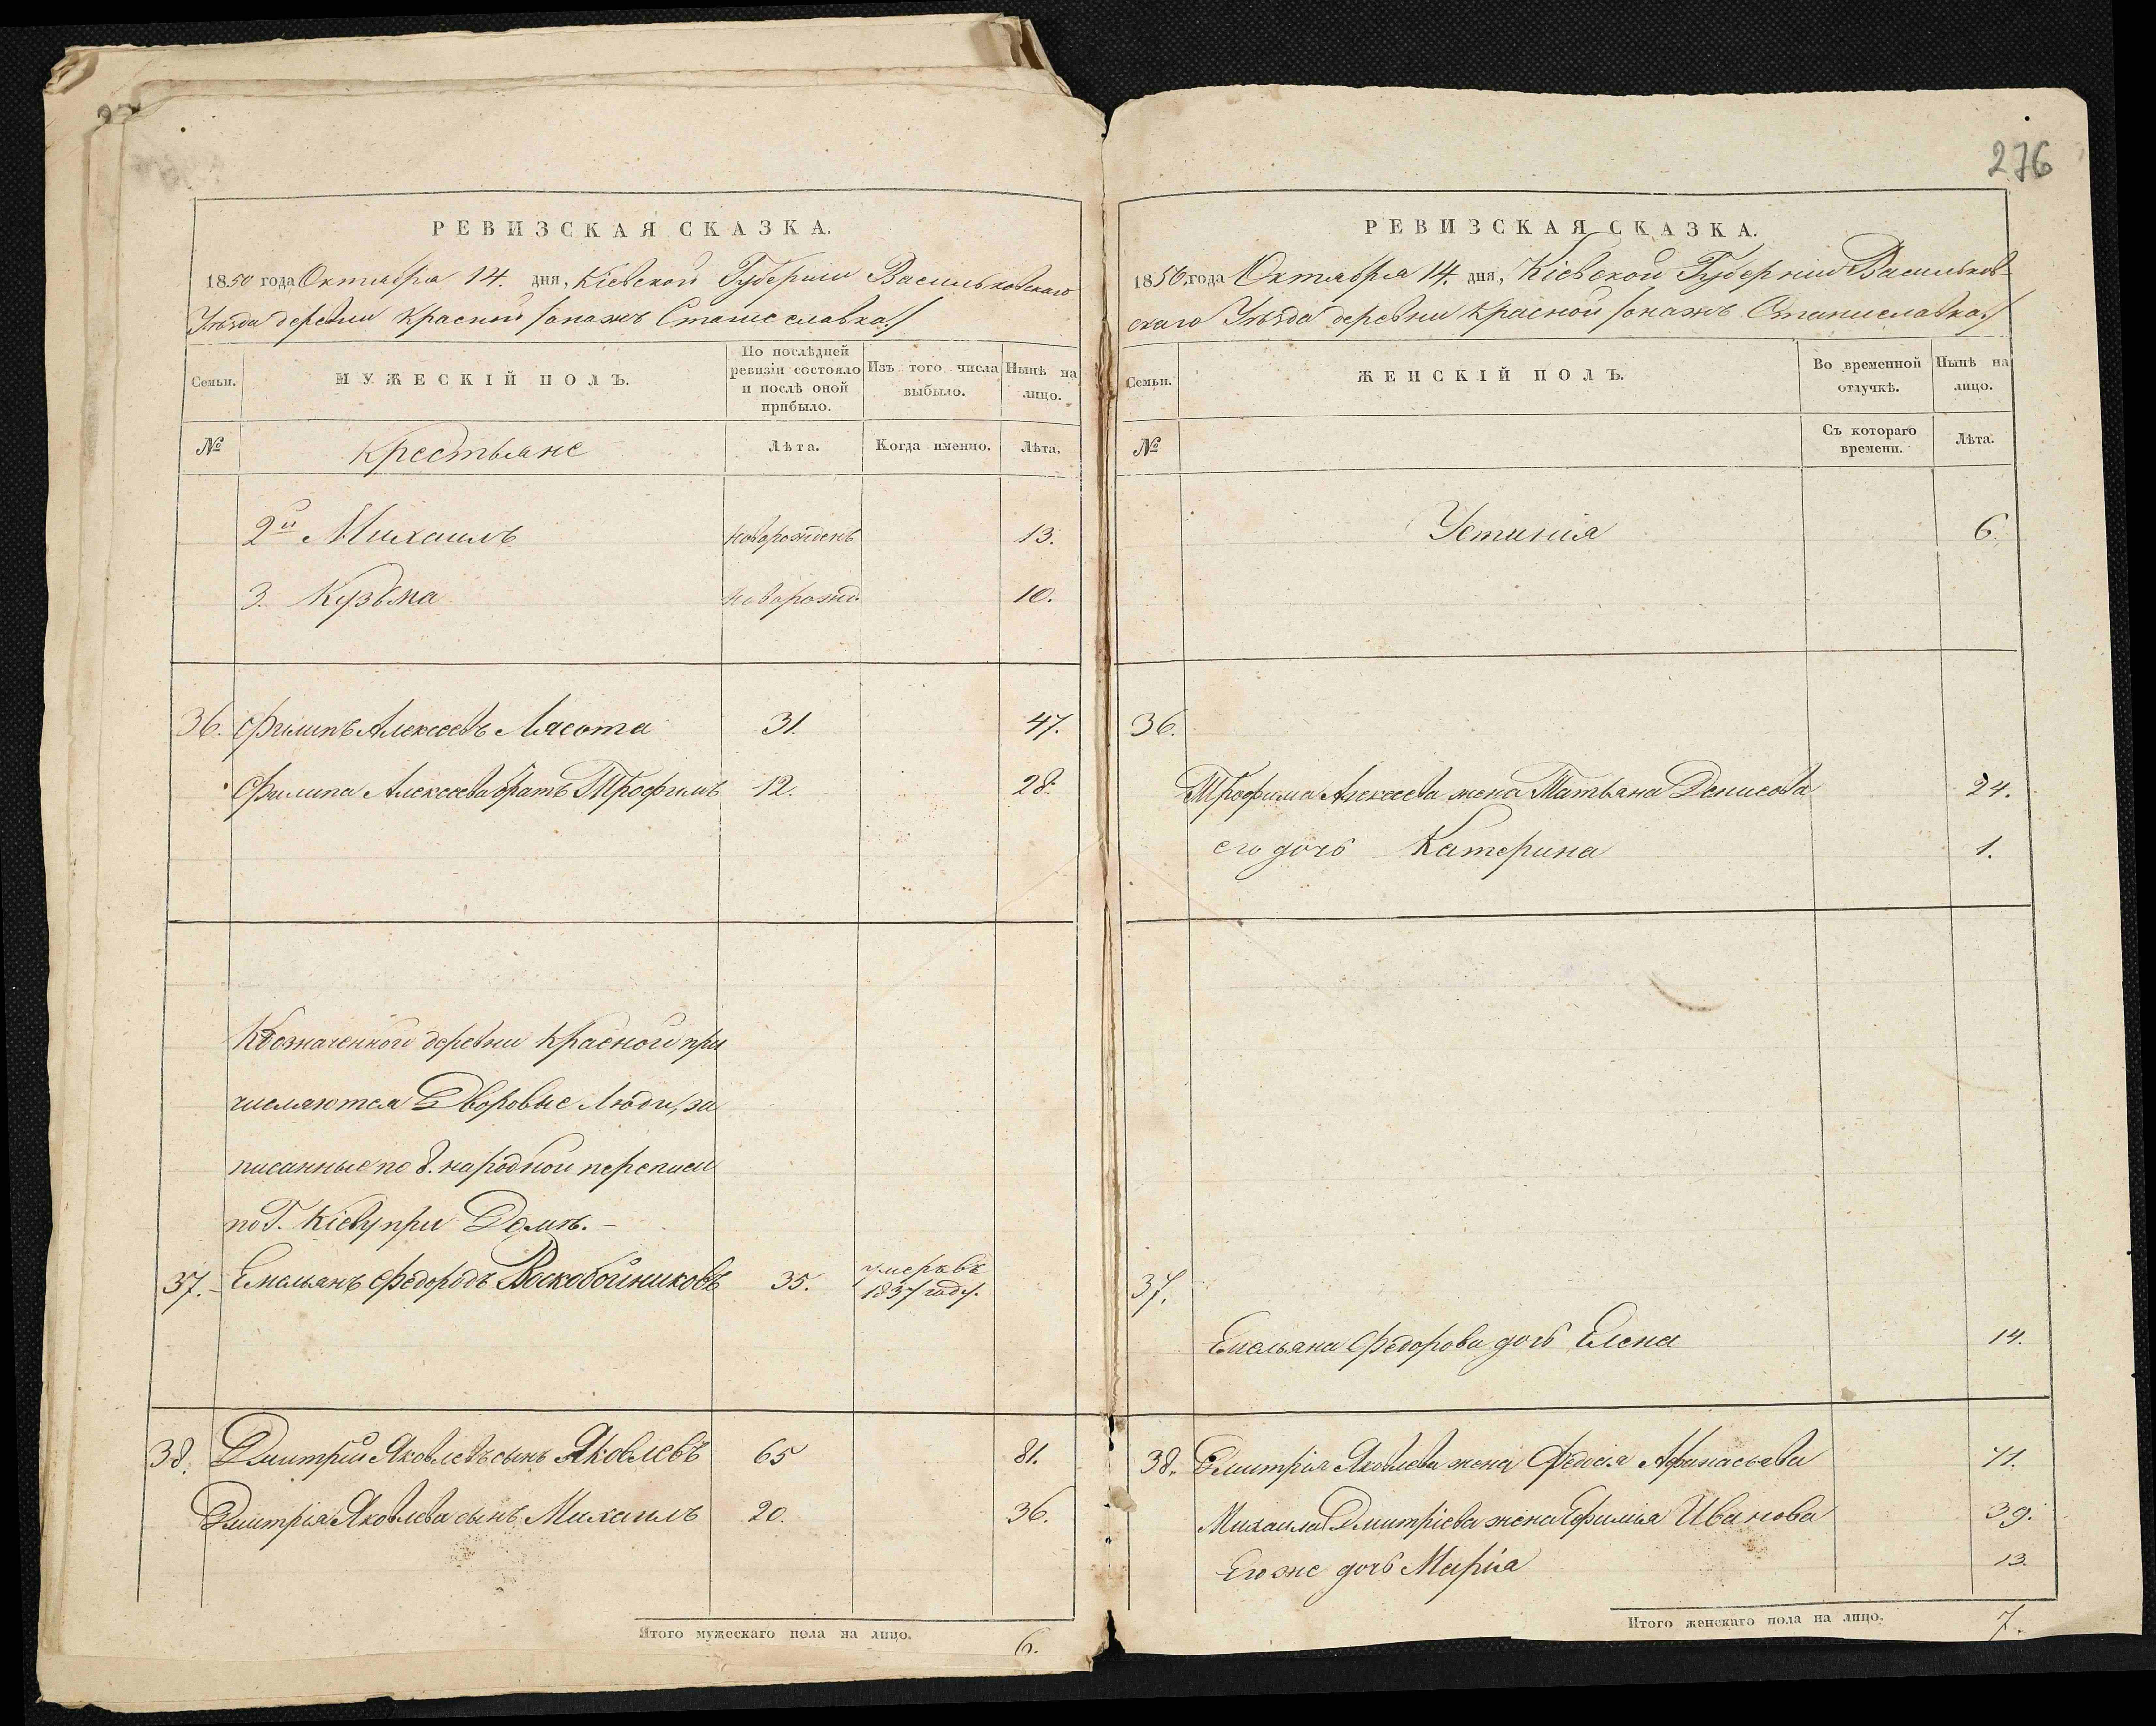 276
РЕВИЗСКАЯ СКАЗКА.
1850 года Октября 14. дня, Кіевской Губерніи Васильковскаго
Уѣзда деревни Красной /онажъ Станиславка./
Семьи.
МУЖЕСКІЙ ПОЛЪ.
По послѣдней ревизіи состояло и послѣ оной прибыло.
Изъ того числа выбыло.
Нынѣ на лицо.
№
Крестьяне
Лѣта.
Когда именно.
Лѣта.
2й Михаилъ новорожденъ 13.
3. Кузьма новорожд. 10.
36. Филипъ Алексеевъ Лясота 31. 47.
Филипа Алексеева братъ Трофимъ 12. 28.
Къ означенной деревни Красной при
числяются Дворовые Люди, за
писанные по 8. народной переписи
по Г. Кіеву при Домѣ.
37. Емельянъ Федоровъ Воскобойниковъ 35. умеръ въ
1837 году.
38. Дмитрій Яковлевъ сынъ Яковлевъ 65 81.
Дмитрія Яковлева сынъ Михаилъ 20. 36.
Итого мужескаго пола на лицо. 6.
РЕВИЗСКАЯ СКАЗКА.
1850, года Октября 14. дня, Кіевской Губерніи Васильков-
скаго Уѣзда деревни Красной /онажъ Станиславка./
Семьи.
ЖЕНСКІЙ ПОЛЪ.
Во временной отлучкѣ.
Нынѣ на лицо.
№
Съ котораго времени.
Лѣта.
Устинія 6.
36.
Трофима Алексеева жена Татьяна Денисова 24.
его дочь Катерина 1.
37.
Емельяна Федорова дочь Елена 14.
38. Дмитрія Яковлева жена Федося Афанасьева 71.
Михаила Дмитріева жена Ефимья Иванова 39.
Егоже дочь Марія 13.
Итого женскаго пола на лицо. 7.